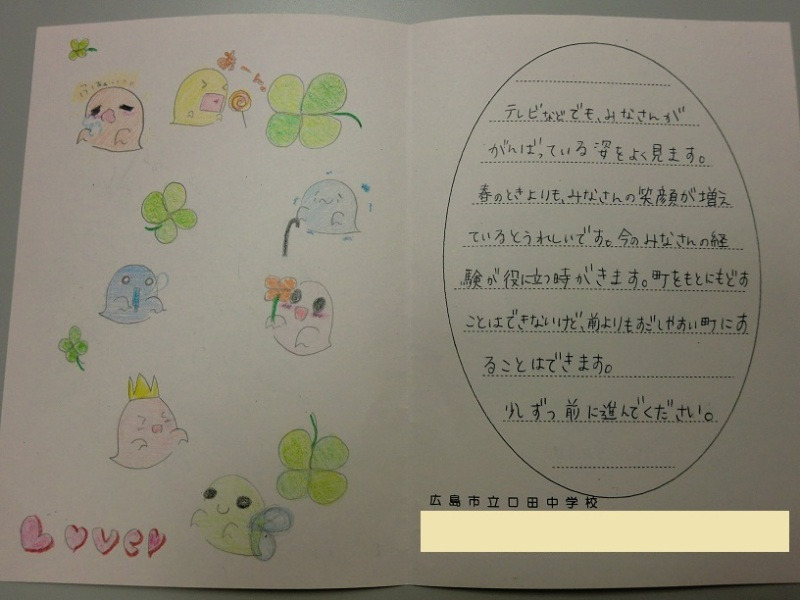 あーん
Lovely
テレビなどでも、みなさんが
がんばっている姿をよく見ます。
春のときよりも、みなさんの笑顔が増え
ているとうれしいです。今のみなさんの経
験が役に立つ時がきます。町をもとにもどす
ことはできないけど、前よりもすごしやすい町にす
ることはできます。
少しずつ前に進んでください。
広島市立口田中学校